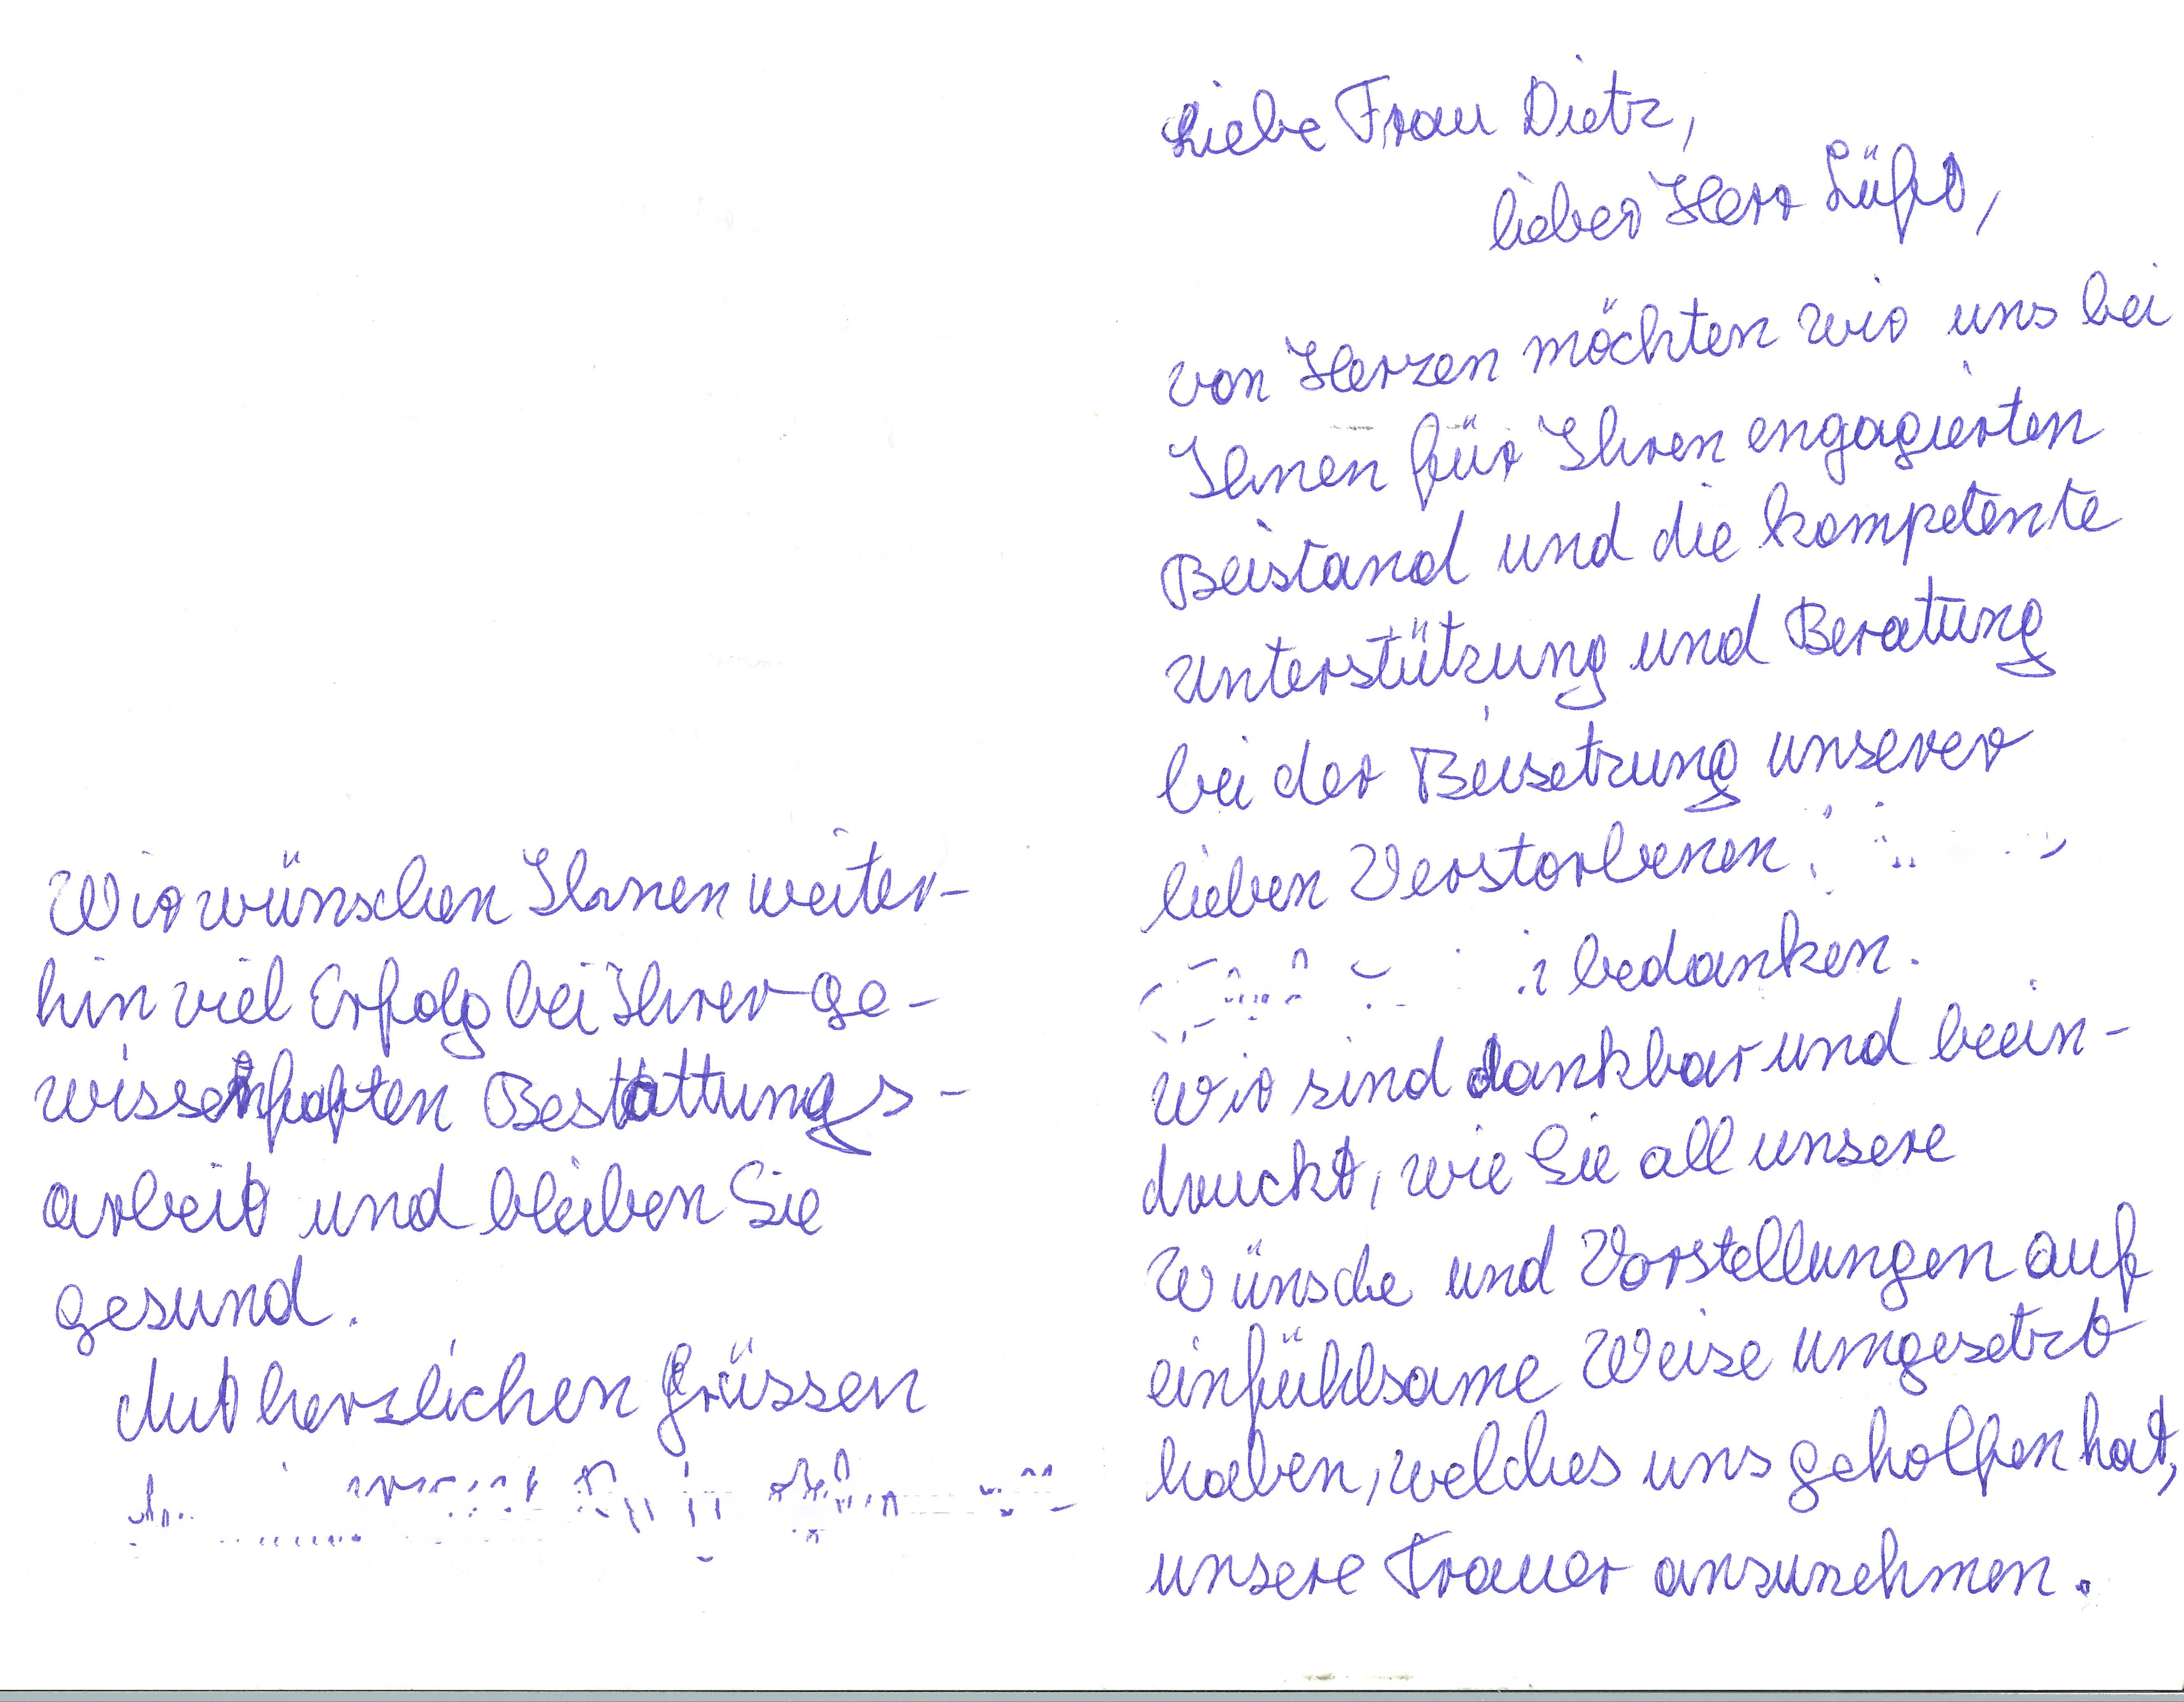 Liebe Frau Dietz,
lieber Herr Lüft,
von Herzen möchten wir uns bei
Ihnen für Ihren engagierten
Beistand und die kompetente
Unterstützung und Beratung
bei der Beisetzung unserer
lieben Verstorbenen
bedanken.
Wir sind dankbar und beein-
druckt, wie Sie all unsere
Wünsche und Vorstellungen auf
einfühlsame Weise umgesetzt
haben, welches uns geholfen hat,
unsere Trauer anzunehmen.
Wir wünschen Ihnen weiter-
hin viel Erfolg bei Ihrer ge-
wissenhaften Bestattungs-
arbeit und bleiben Sie
gesund.
Mit herzlichen Grüssen